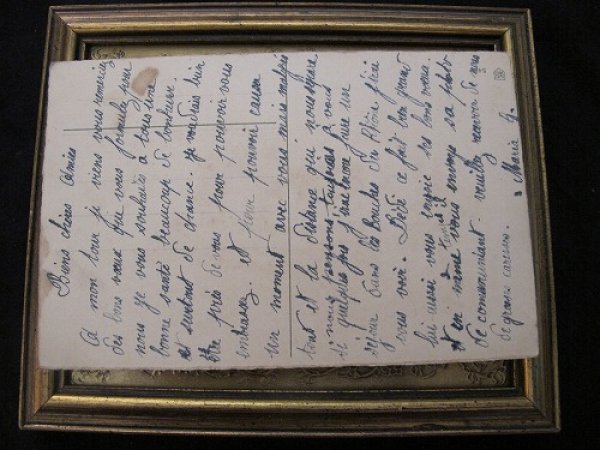 Biens chères Amies
A mon tour je viens vous remercier
des bons vœux que vous formulez pour
nous je vous souhaite à tous une
bonne santé beaucoup de bonheur
et surtout de chance. je voudrais bien
être près de vous pour pouvoir vous
embrasser. et pour pouvoir causer
un moment avec vous mais malgré
tout et la distance qui nous sépare
nous pensons toujours à vous
si quelques jours j'irai faire un
séjour dans les Bouches du Rhône j'irai
vous voir. Dédé ce fait bien grand
lui aussi vous envoie ses bons vœux.
et en même temps il vous envoye sa photo
de communiant. veuillez recevoir de nous
de grosses caresses.
Maria G.